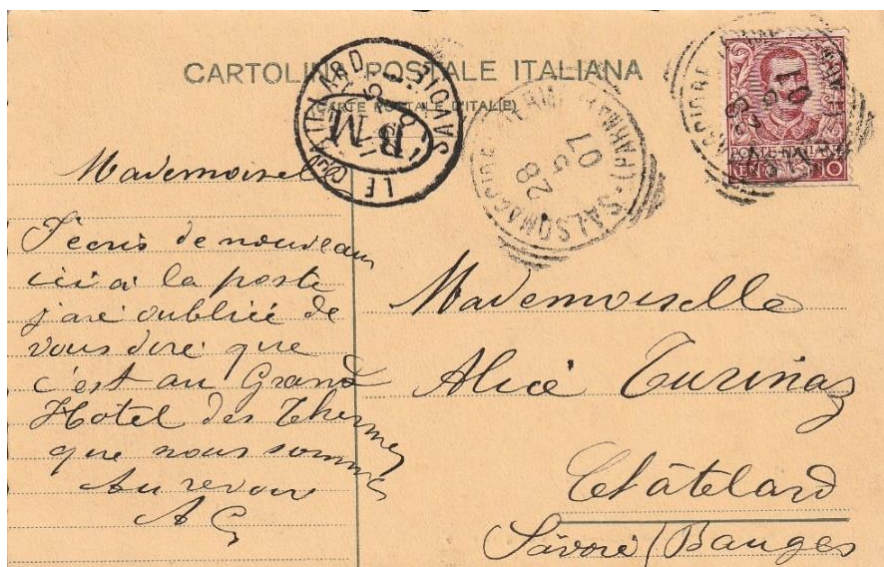 CARTOLINA POSTALE ITALIANA
(CARTE POSTALE D'ITALIE)
LE CHATELARD
SAVOIE
BM
SALSOMAGGIORE
(PARMA)
28 5 07
POSTE ITALIANE
10
Mademoiselle
J'écris de nouveau
ici à la poste
j'ai oubliée de
vous dire que
c'est au Grand
Hotel des Thermes
que nous sommes
Au revoir
A G
Mademoiselle
Alice Turinaz
Châtelard
Savoie (Bauges